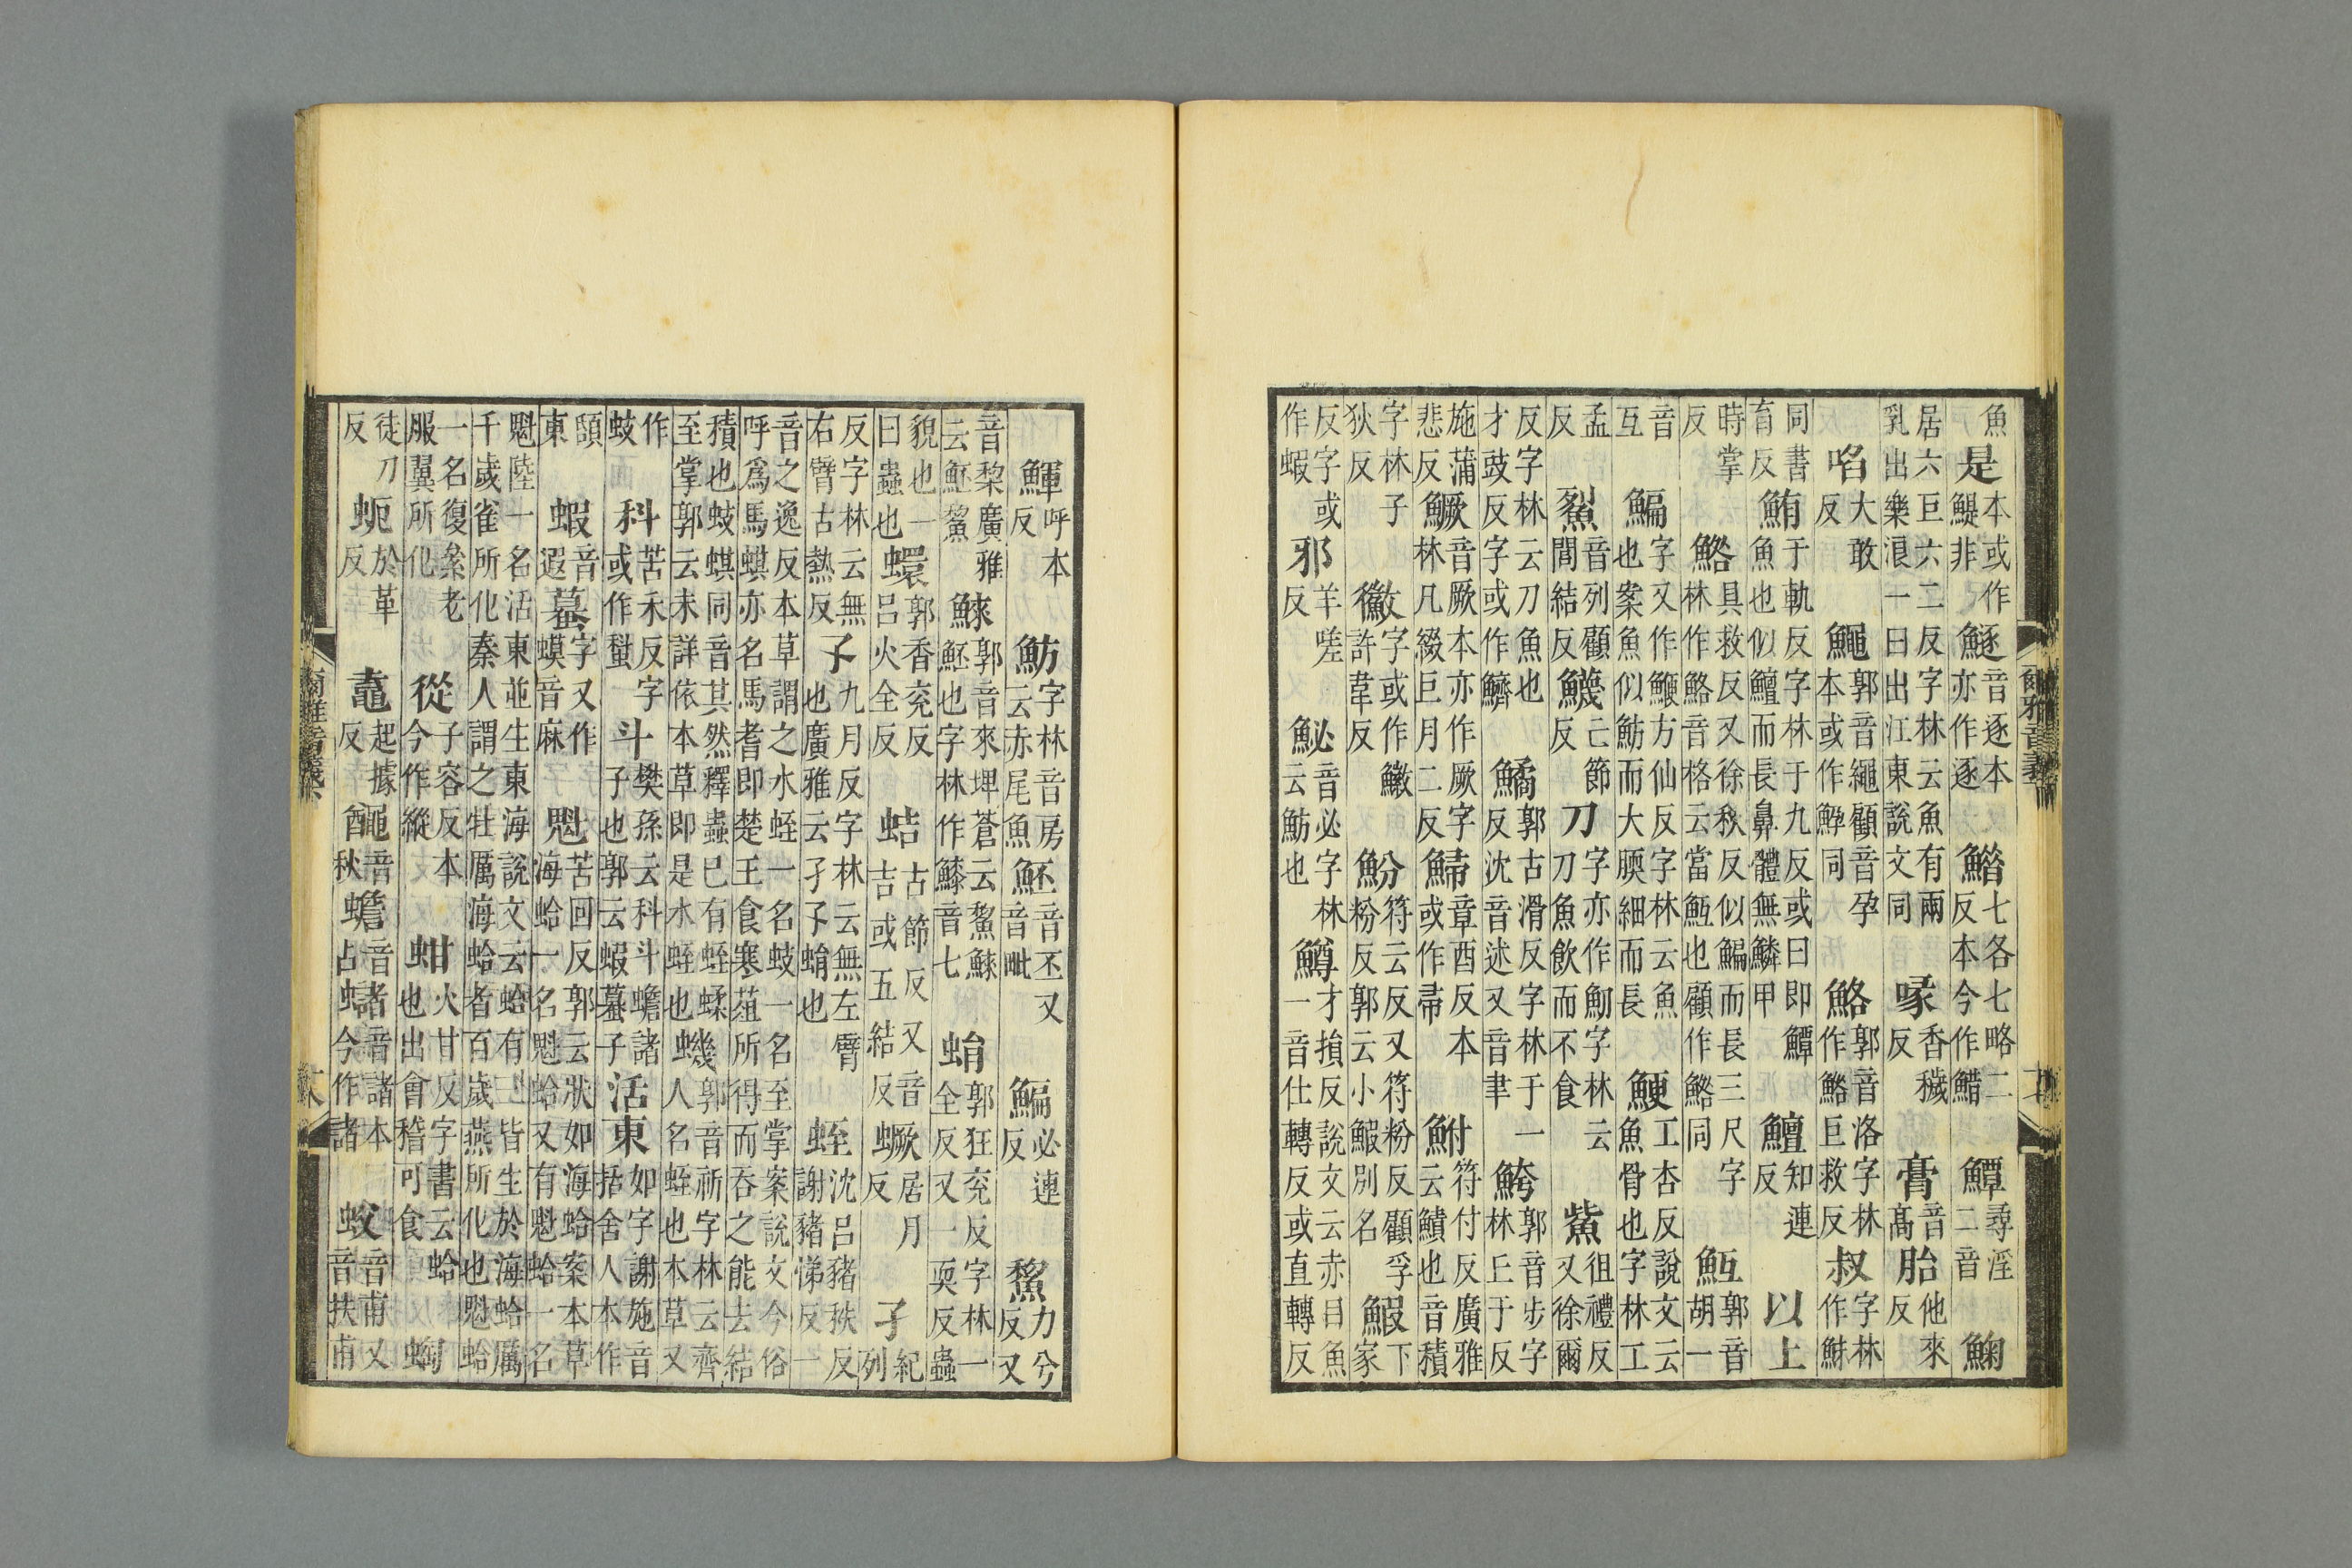 魚是本或作鯷非鱁音逐本亦作逐䱜七各七略二反本今作䱜鱏尋淫二音鮈
居六巨六二反字林云魚有兩乳出樂浪一曰出江東說文同喙香穢反膏音高胎他來反
啗大敢反鱦郭音繩顧音孕本或作同鮥郭音洛字林作䱟巨救反叔字林作鮛
同書育反鮪于軌反字林于九反或曰即鱏魚也似鱣而長鼻體無鱗甲鱣知連反以上
時掌反䱟具救反又徐秋反似鯿而長三尺字林作鮥音格云當魱也顧作䱟同魱郭音胡一
音互鯿字又作鯾方仙反字林云魚也案魚似魴而大腰細而長鯁工杏反說文云魚骨也字林工
孟反鮤音列顧閭結反鱴亡節反刀字亦作魛字林云刀魚飲而不食鮆徂禮反又徐爾
反字林云刀魚也才豉反字或作鱭鱊郭古滑反字林于一反沈音述又音聿鮬郭音步字林丘于反
施蒲悲反鱖音厥本亦作厥字林凡綴巨月二反鯞章酉反本或作帚鮒符付反廣雅云鰿也音積
字林子狄反字或作鰴許韋反魵符云反又符粉反顧孚粉反郭云小鰕別名鰕下家
反字或作蝦邪羊嗟反鮅音必字林云魴也鱒才損反說文云赤目魚一音仕轉反或直轉反
爾雅音義
鯶呼本反魴字林音房云赤尾魚魾音丕又音毗鯿必連反鯬力兮反又
音黎廣雅云魾鯬鯠郭音來埤蒼云鯬鯠魾也字林作音七蜎郭狂兗反字林一全反又一耎反蟲
貌也一曰蟲也蠉郭香兗反呂火全反蛣古節反又音吉或五結反蟩居月反孑紀列
反字林云無右臂古熱反孓九月反字林云無左臂也廣雅云孑孓蜎也蛭沈呂豬秩反謝豬悌反一
音之逸反本草謂之水蛭一名蚑一名至掌案說文今俗呼爲馬蜞亦名馬耆即楚王食寒菹所得而吞之能去結
積也蚑蜞同音其然釋蟲已有蛭蝚至掌郭云未詳依本草即是水蛭也蟣郭音祈字林云齊人名蛭也本草又
作蚑科苦禾反字或作蝌斗樊孫云科斗蟾諸子也郭云蝦蟇子活東如字謝施音括舍人本作
頢東蝦音遐蟇字又作蟆音麻魁苦回反郭云狀如海蛤案本草海蛤一名魁蛤又有魁蛤一名
魁陸一名活東並生東海說文云蛤有三皆生於海蛤厲千歲雀所化秦人謂之牡厲海蛤者百歲燕所化也魁蛤
一名復絫老服翼所化從子容反本今作縱蚶火甘反字書云蛤也出會稽可食蜪
徒刀反蚅於革反鼁起據反𪓰音秋蟾音占蠩音諸本今作諸蚥音甫又音扶甫
爾雅音義